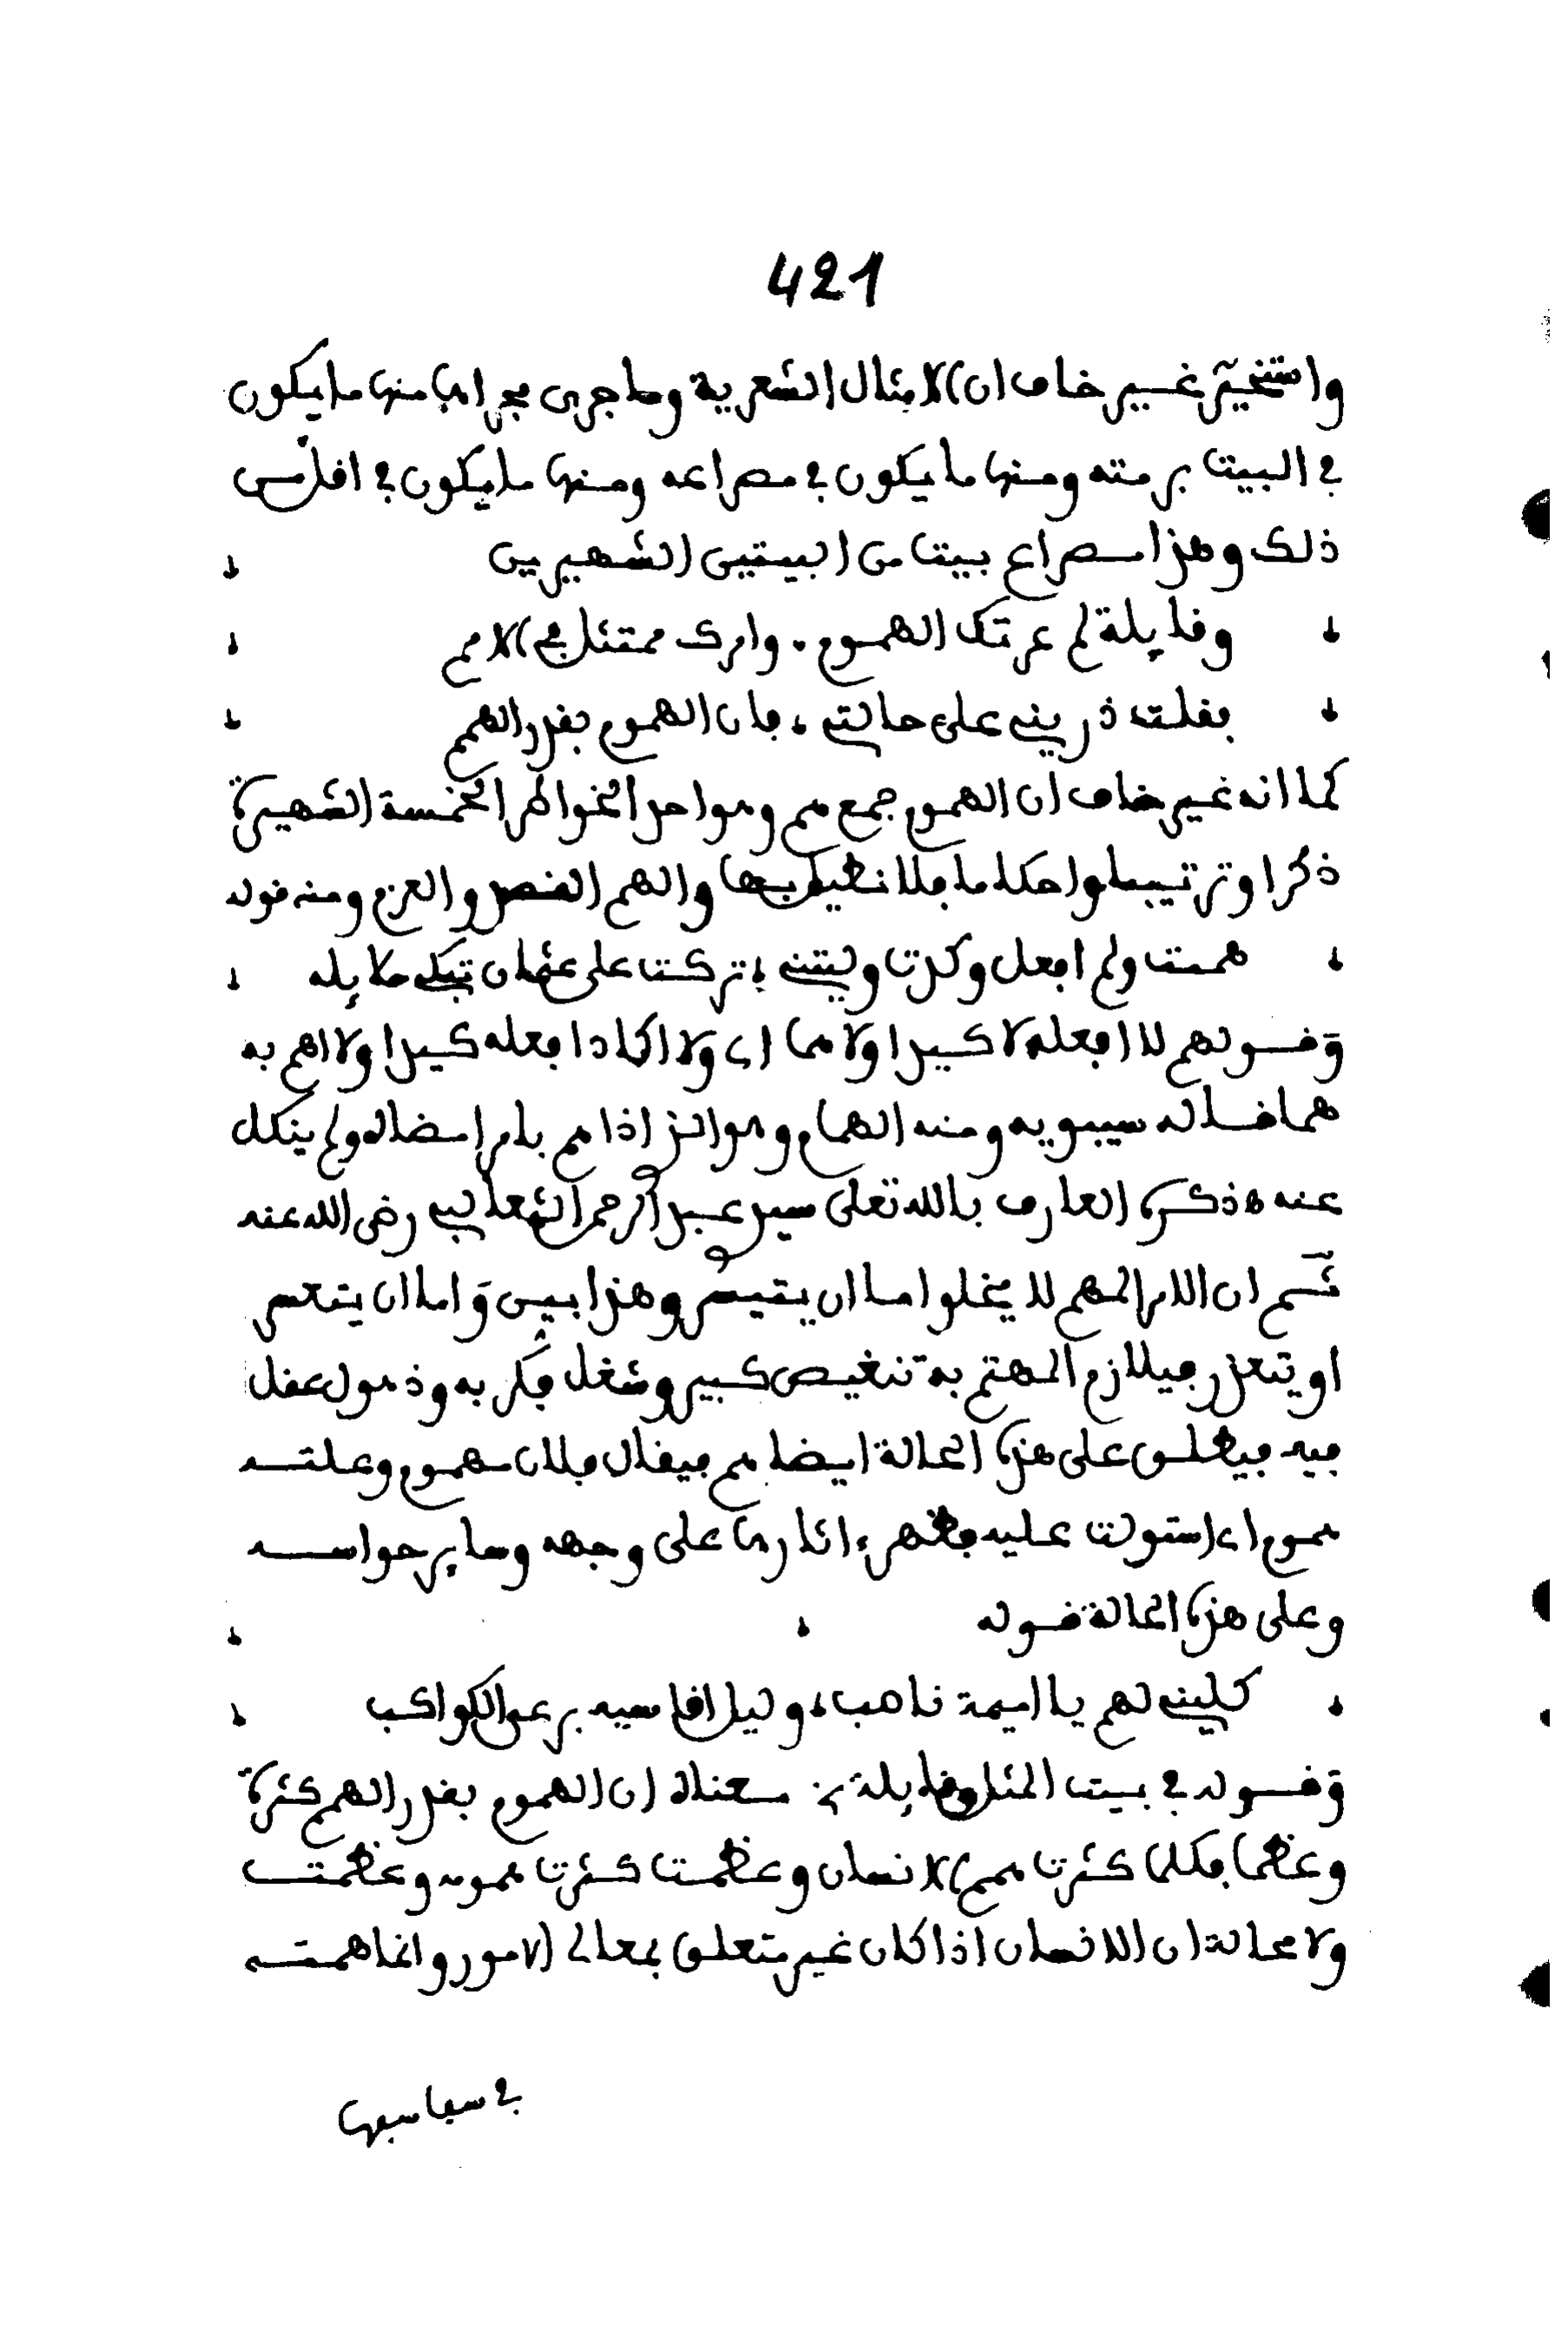 421
واستخير غير خاف ان الامثال الشعرية وما جرى مجراها منها ما يكون
في البيت برمته ومنها ما يكون في مصراعه ومنها ما يكون في اقل من
ذلك وهذا مصراع بيت من البيتين الشهيرين
وقايلة لم عرتك الهموم . وامرك ممتثل في الامم
فقلت ذريني على حالتي ، فان الهموم بقدر الهمم
كما انه غير خاف ان الهموم جمع هم وهو احد الخواطر الخمسة الشهيرة
ذكرا وترتيبا واحكاما فلا نطيل بها والهم القصد والعزم ومنه قوله
هممت ولم افعل وكدت وليتني ، تركت على عثمان تبكي حلايله
وقولهم لا افعله لا كيدا ولا هما اي ولا اكاد افعله كيدا ولا اهم به
هما قاله سيبويه ومنه الهمام وهو الذي اذا هم بامر امضاه ولم ينكل
عنه ذكره العارف بالله تعلى سيدي عبد الرحمن الثعالبي رضي الله عنه
ثم ان الامر المهم لا يخلوا اما ان يتيسر وهذا بين واما ان يتعسر
او يتعذر فيلازم المهتم به تنغيص كبير وشغل فكر به وذهول عقل
فيه فيطلق على هذه الحالة ايضا هم فيقال فلان مهموم وعلته
هموم اي استولت عليه فظهر اثارها على وجهه وساير حواسه
وعلى هذه الحالة قوله
كليني لهم يا اميمة ناصب ، وليل اقاسيه برعي الكواكب
وقوله في بيت المثل وقايلة معناه ان الهموم بقدر الهمم كثرة
وعظما فكلما كثرت همم الانسان وعظمت كثرت همومه وعظمت
ولا محالة ان الانسان اذا كان غير متعلق بمعالي الامور وانما همته
في سفاسفها